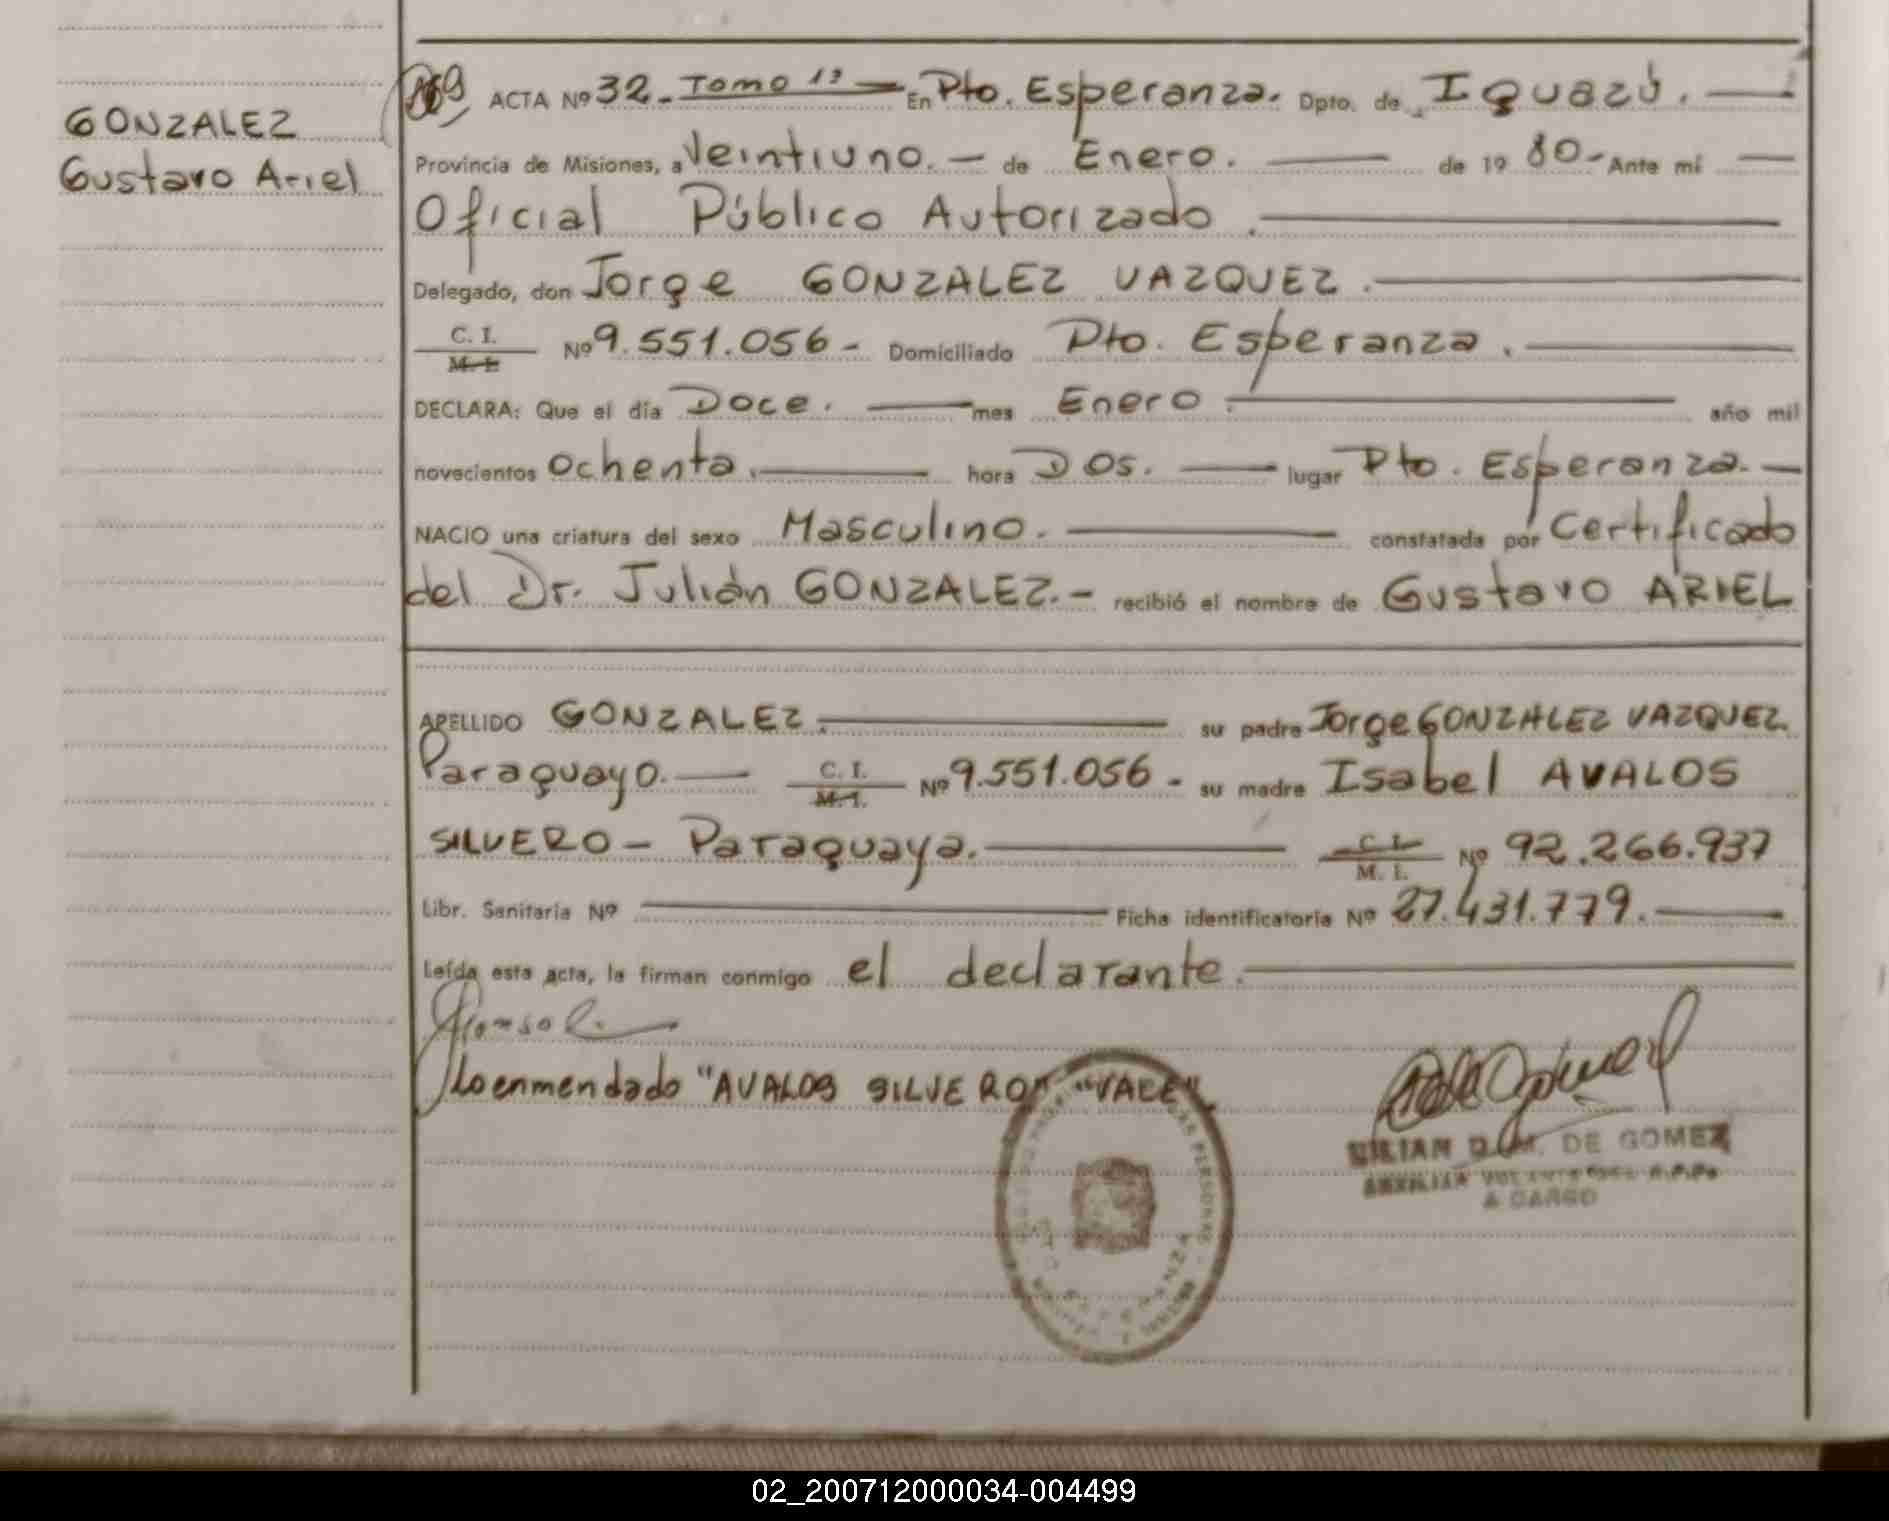 GONZALEZ
Gustavo Ariel
ACTA Nº 32.- Tomo 1º — En Pto. Esperanza. Dpto. de Iguazú. —
Provincia de Misiones, a Veintiuno. — de Enero. — de 19 80.- Ante mí —
Oficial Público Autorizado. —
Delegado, don Jorge GONZALEZ VAZQUEZ. —
C. I.
M. I. Nº 9.551.056 - Domiciliado Pto. Esperanza. —
DECLARA: Que el día Doce. — mes Enero. — año mil
novecientos Ochenta. — hora Dos. — lugar Pto. Esperanza. —
NACIO una criatura del sexo Masculino. — constatada por Certificado
del Dr. Julián GONZALEZ. - recibió el nombre de Gustavo ARIEL
APELLIDO GONZALEZ. — su padre Jorge GONZALEZ VAZQUEZ.
Paraguayo. — C. I.
M. I. Nº 9.551.056 - su madre Isabel AVALOS
SILVERO - Paraguaya. — C. I.
M. I. Nº 92.266.937
Libr. Sanitaria Nº — Ficha identificatoria Nº 27.431.779. —
Leída esta acta, la firman conmigo el declarante. —
Lo enmendado "AVALOS SILVERO" "VALE".
LILIAN D. M. DE GOMEZ
AUXILIAR VOLANTE DEL R.P.Ps
A CARGO
02_200712000034-004499